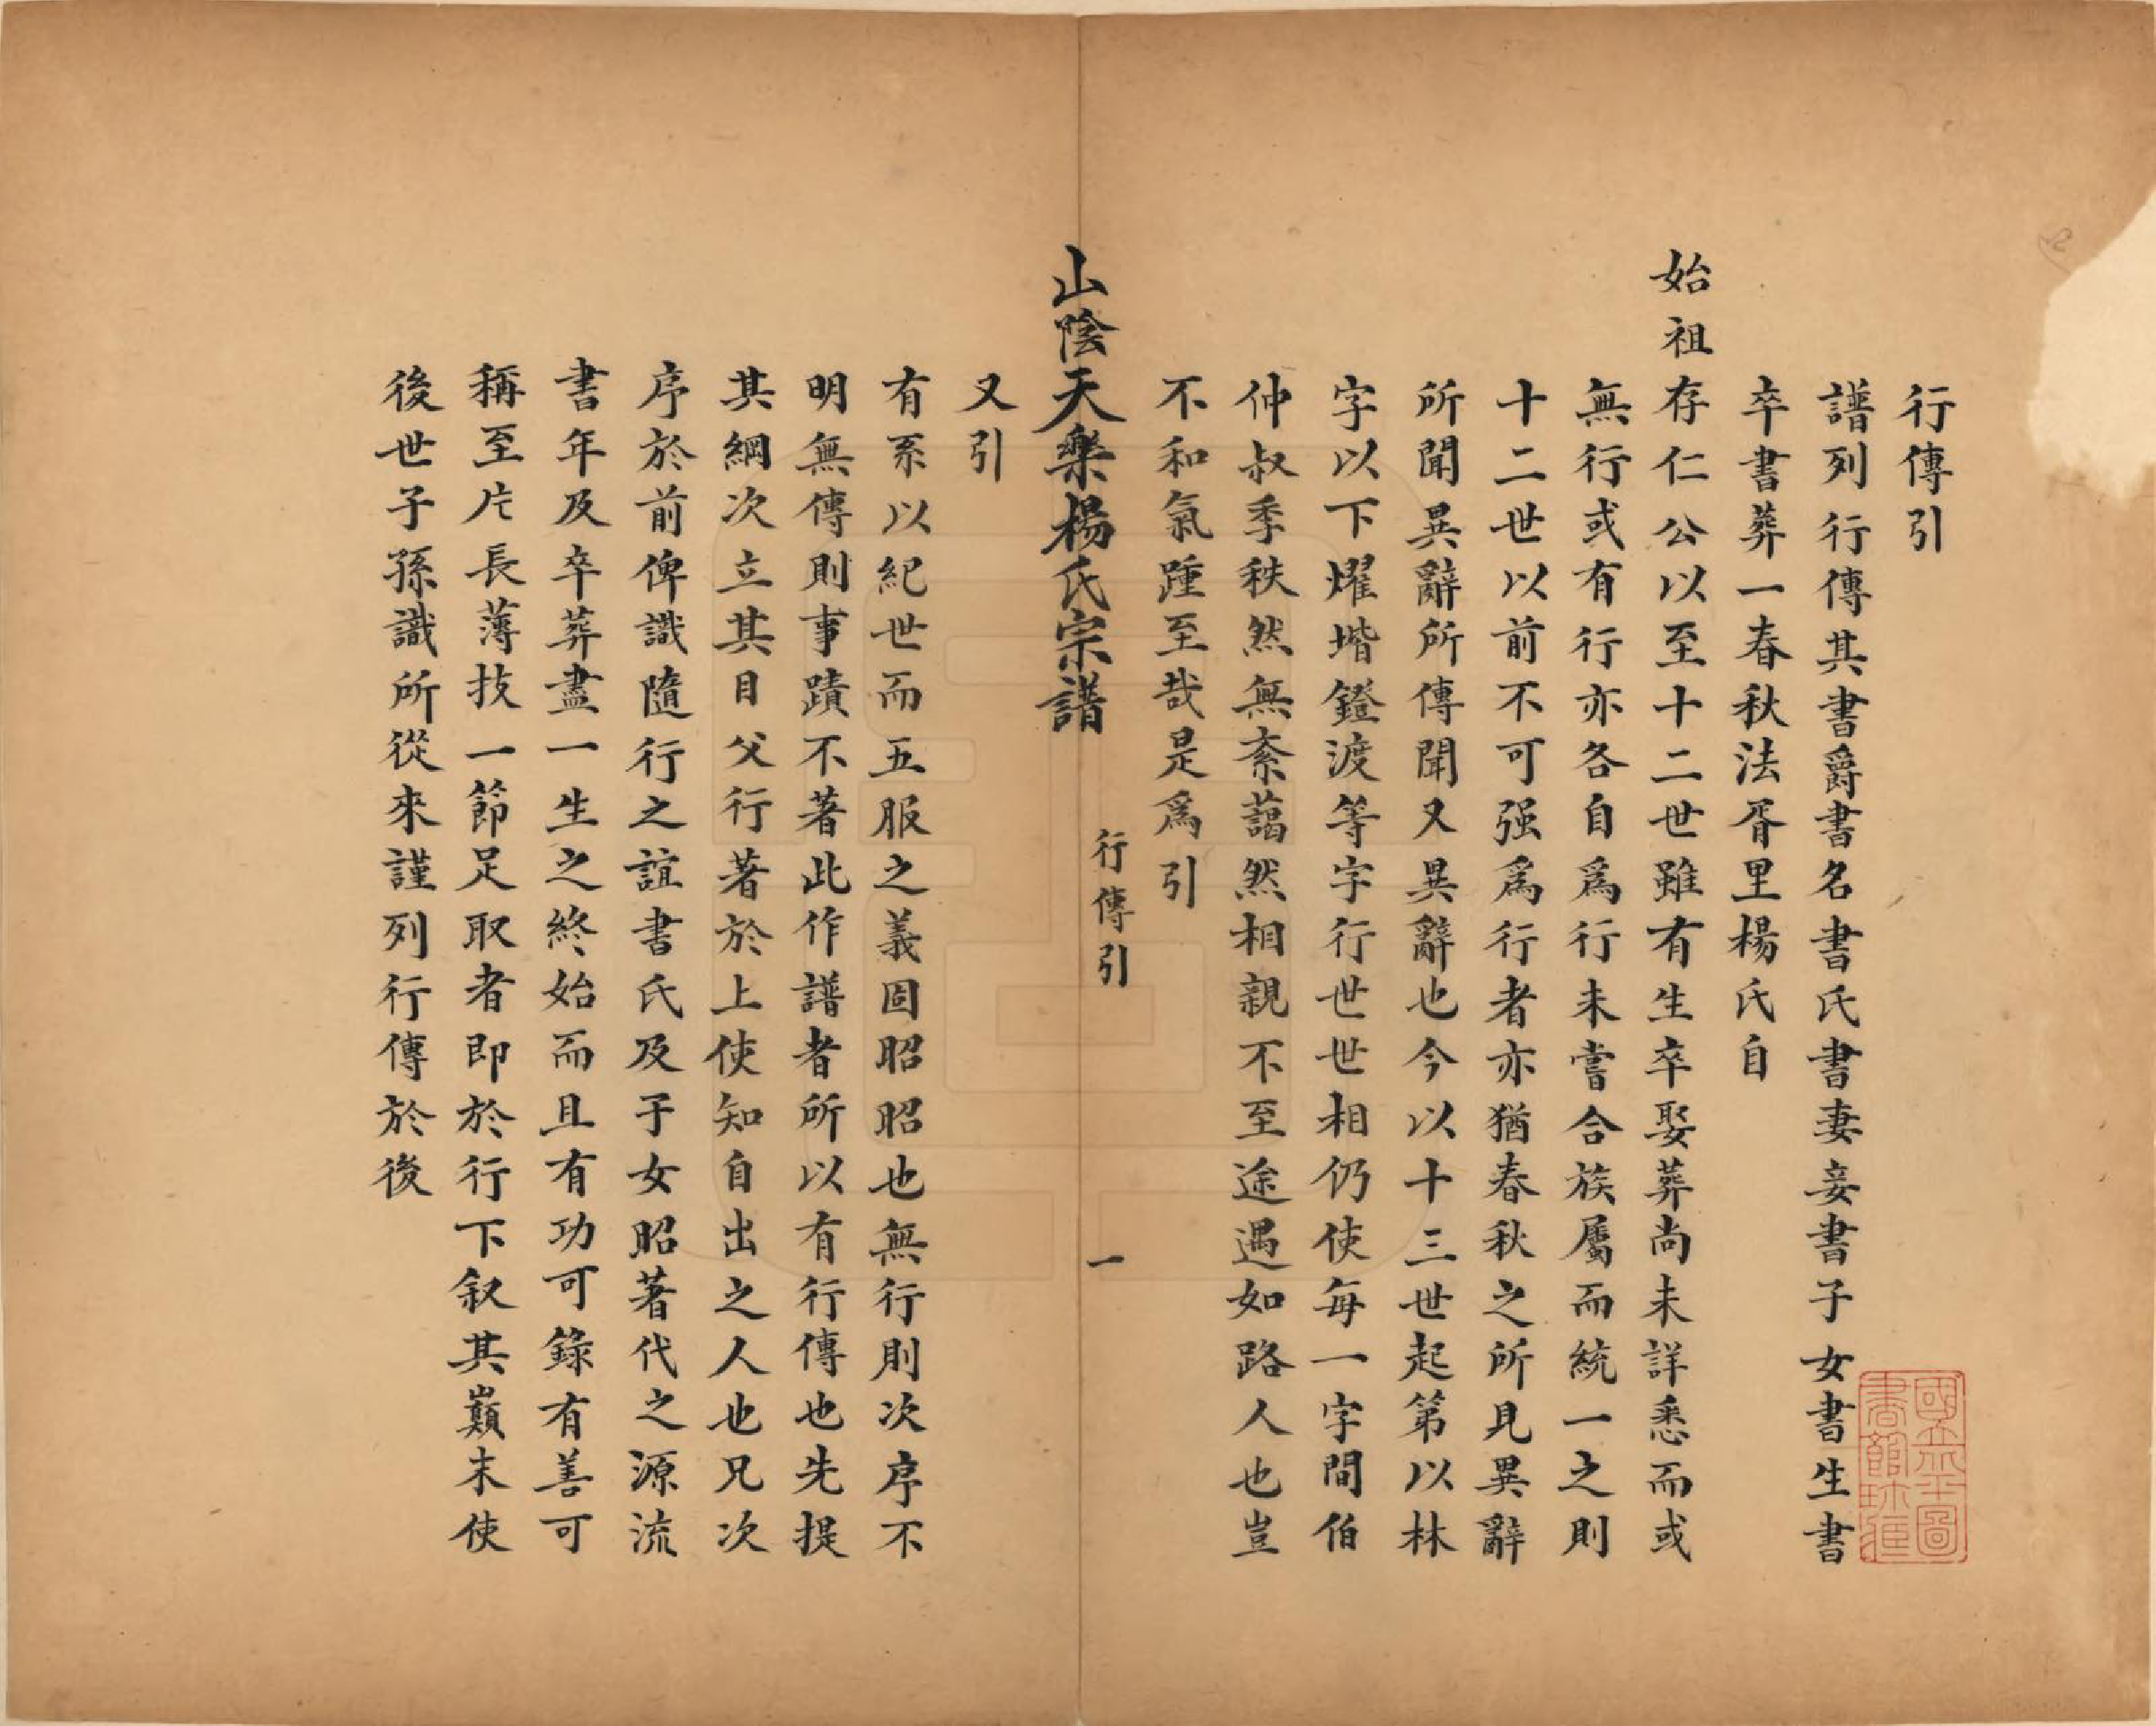 行傳引
譜列行傳其書爵書名書氏書妻妾書子女書生書
卒書葬一春秋法胥里楊氏自
始祖存仁公以至十二世雖有生卒娶葬尚未詳悉而或
無行或有行亦各自爲行未嘗合族屬而統一之則
十二世以前不可强爲行者亦猶春秋之所見異辭
所聞異辭所傳聞又異辭也今以十三世起第以林
字以下燿堦鐙渡等字行世世相仍使每一字間伯
仲叔季秩然無紊藹然相親不至途遇如路人也豈
不和氣踵至哉是爲引
山陰天樂楊氏宗譜
行傳引
一
又引
有系以紀世而五服之義固昭昭也無行則次序不
明無傳則事蹟不著此作譜者所以有行傳也先提
其綱次立其目父行著於上使知自出之人也兄次
序於前俾識隨行之誼書氏及子女昭著代之源流
書年及卒葬盡一生之終始而且有功可錄有善可
稱至片長薄技一節足取者即於行下叙其巔末使
後世子孫識所從來謹列行傳於後
國立北平圖
書館珍藏